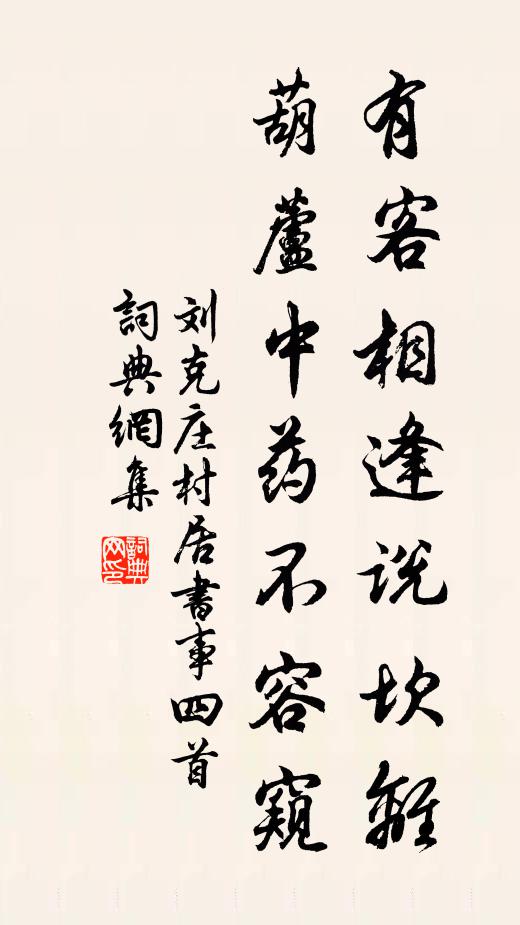 有客相逢说坎離
葫蘆中药不容窺
刘克庄村居書事四首
詞典網集
詞典網印